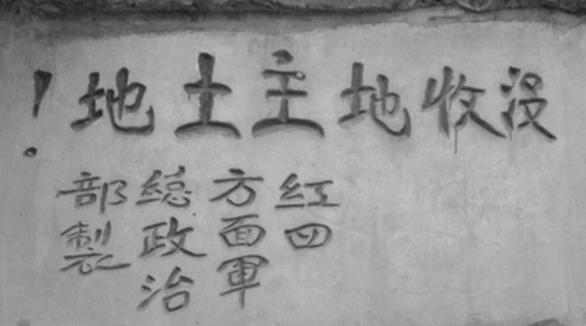 没收地主土地!
红四
方面軍
総政治
部製